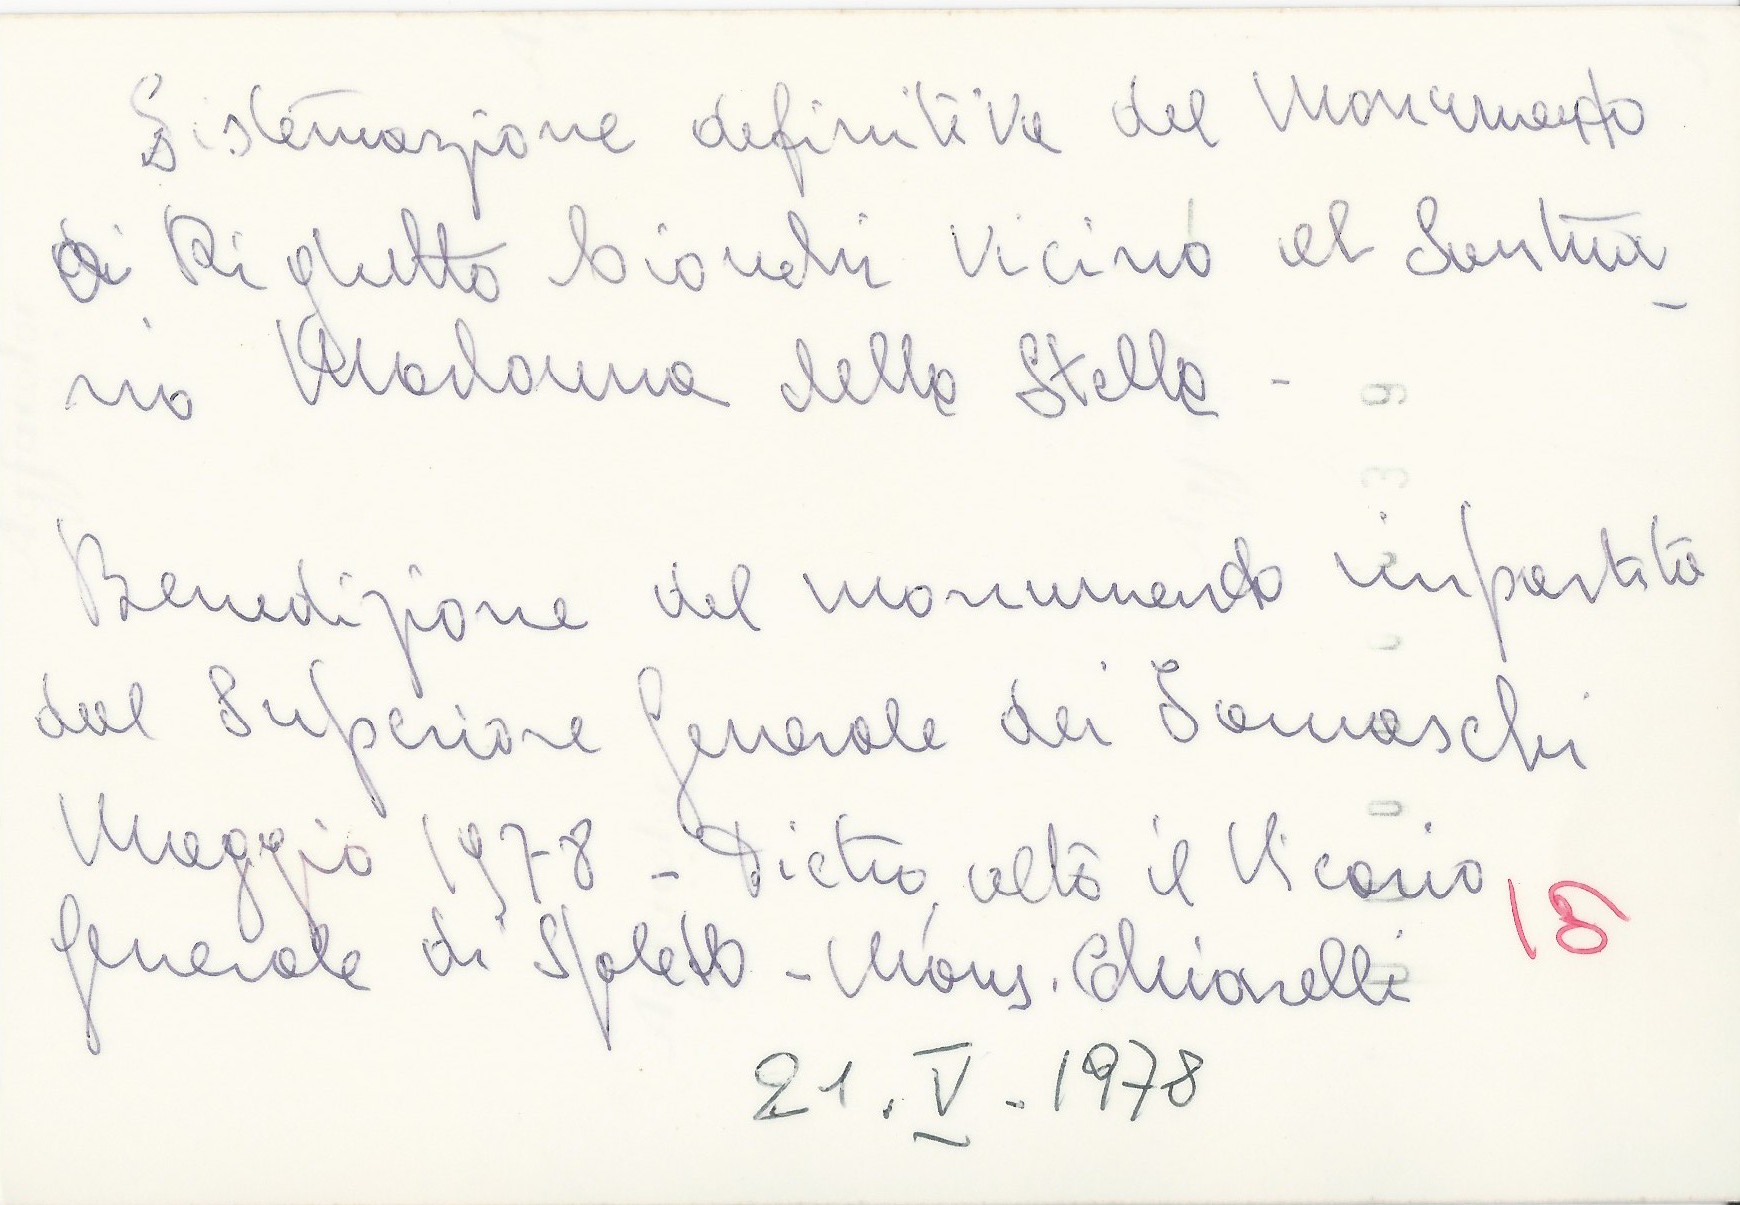 Sistemazione definitiva del Monumento
di Righetto Cionchi vicino al Santua-
rio Madonna della Stella -
Benedizione del monumento impartita
dal Superiore Generale dei Somaschi
Maggio 1978 - Dietro, alto il Vicario
Generale di Spoleto - Mons. Chiarelli
18
21. V - 1978